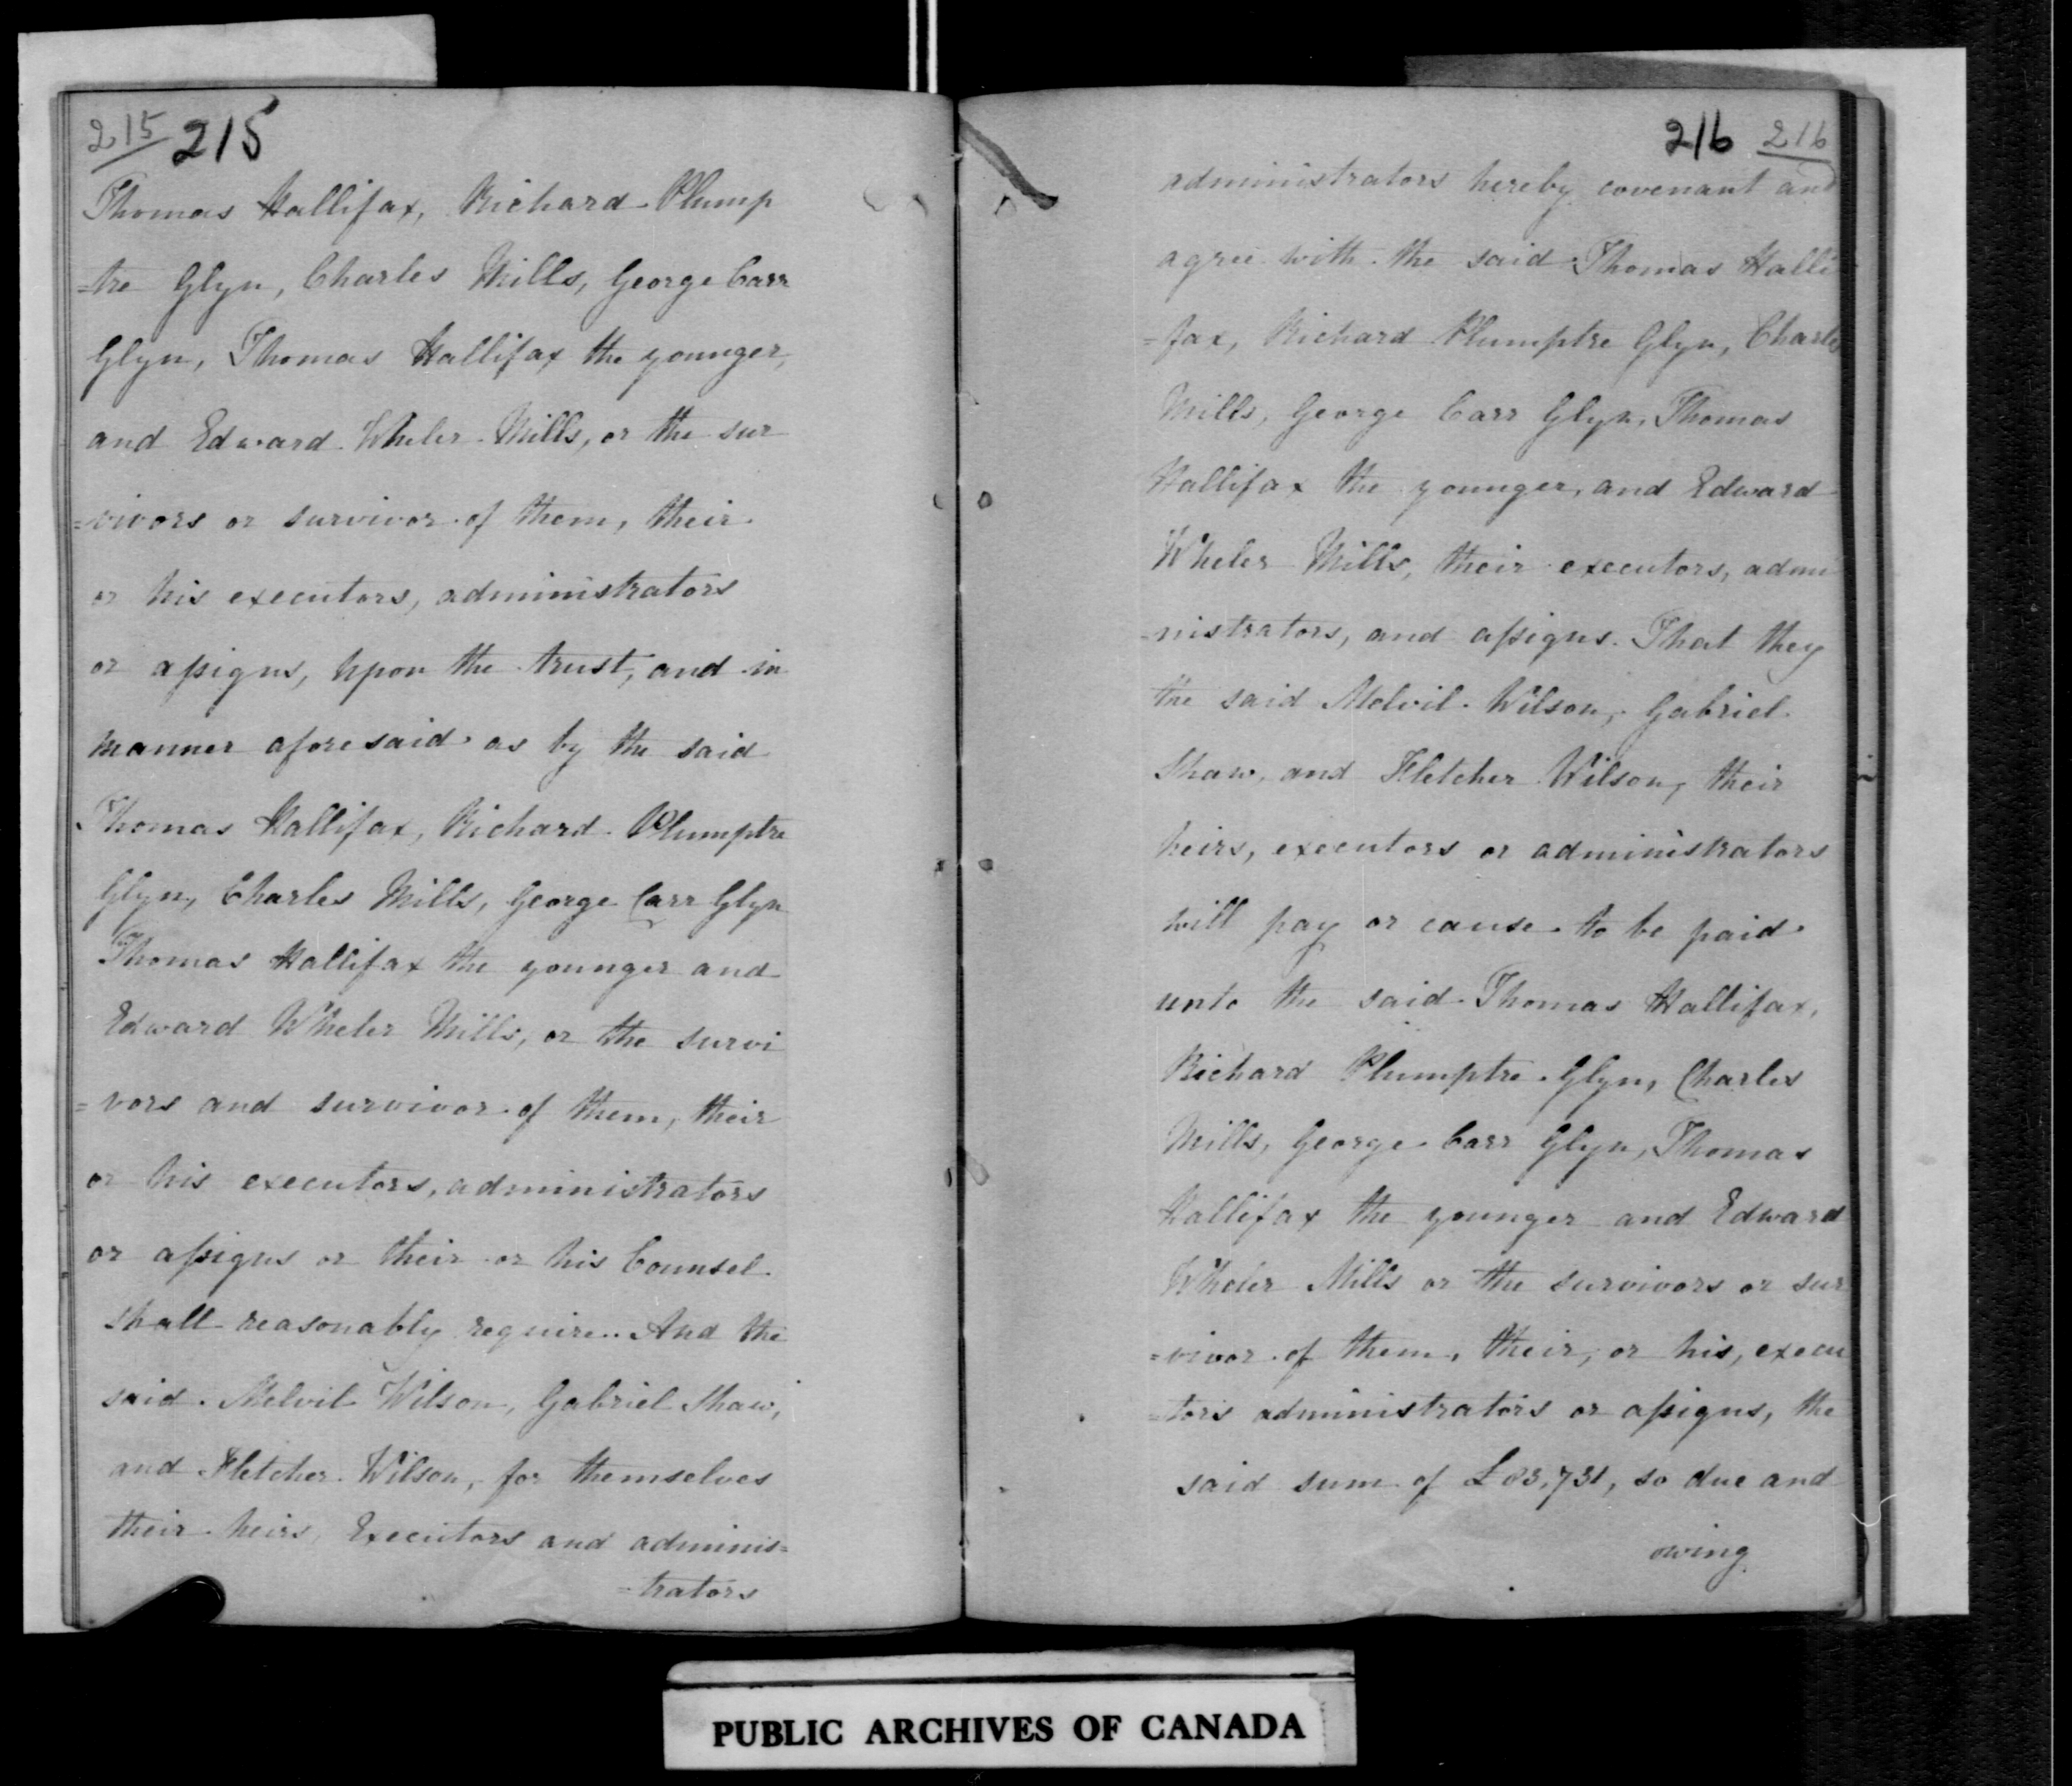 215 215
Thomas Hallifax, Richard Plump
=tre Glyn, Charles Mills, George Carr
Glyn, Thomas Hallifax the younger,
and Edward Wheler Mills, or the sur
=vivors or survivor of them, their
or his executors, administrators
or assigns, upon the trust, and in
manner aforesaid as by the said
Thomas Hallifax, Richard Plumptre
Glyn, Charles Mills, George Carr Glyn
Thomas Hallifax the younger and
Edward Wheler Mills, or the survi
=vors and survivor of them, their
or his executors, administrators
or assigns or their or his Counsel
shall reasonably require. And the
said Melvil Wilson, Gabriel Shaw,
and Fletcher Wilson, for themselves
their heirs, Executors and adminis=
=trators
216 216
administrators hereby covenant and
agree with the said Thomas Halli
=fax, Richard Plumptre Glyn, Charles
Mills, George Carr Glyn, Thomas
Hallifax the younger, and Edward
Wheler Mills, their executors, admi
=nistrators, and assigns. That they
the said Melvil Wilson, Gabriel
Shaw, and Fletcher Wilson, their
heirs, executors or administrators
will pay or cause to be paid
unto the said Thomas Hallifax,
Richard Plumptre Glyn, Charles
Mills, George Carr Glyn, Thomas
Hallifax the younger and Edward
Wheler Mills or the survivors or sur
=vivor of them, their, or his, execu
=tors administrators or assigns, the
said sum of £83,731, so due and
owing
PUBLIC ARCHIVES OF CANADA